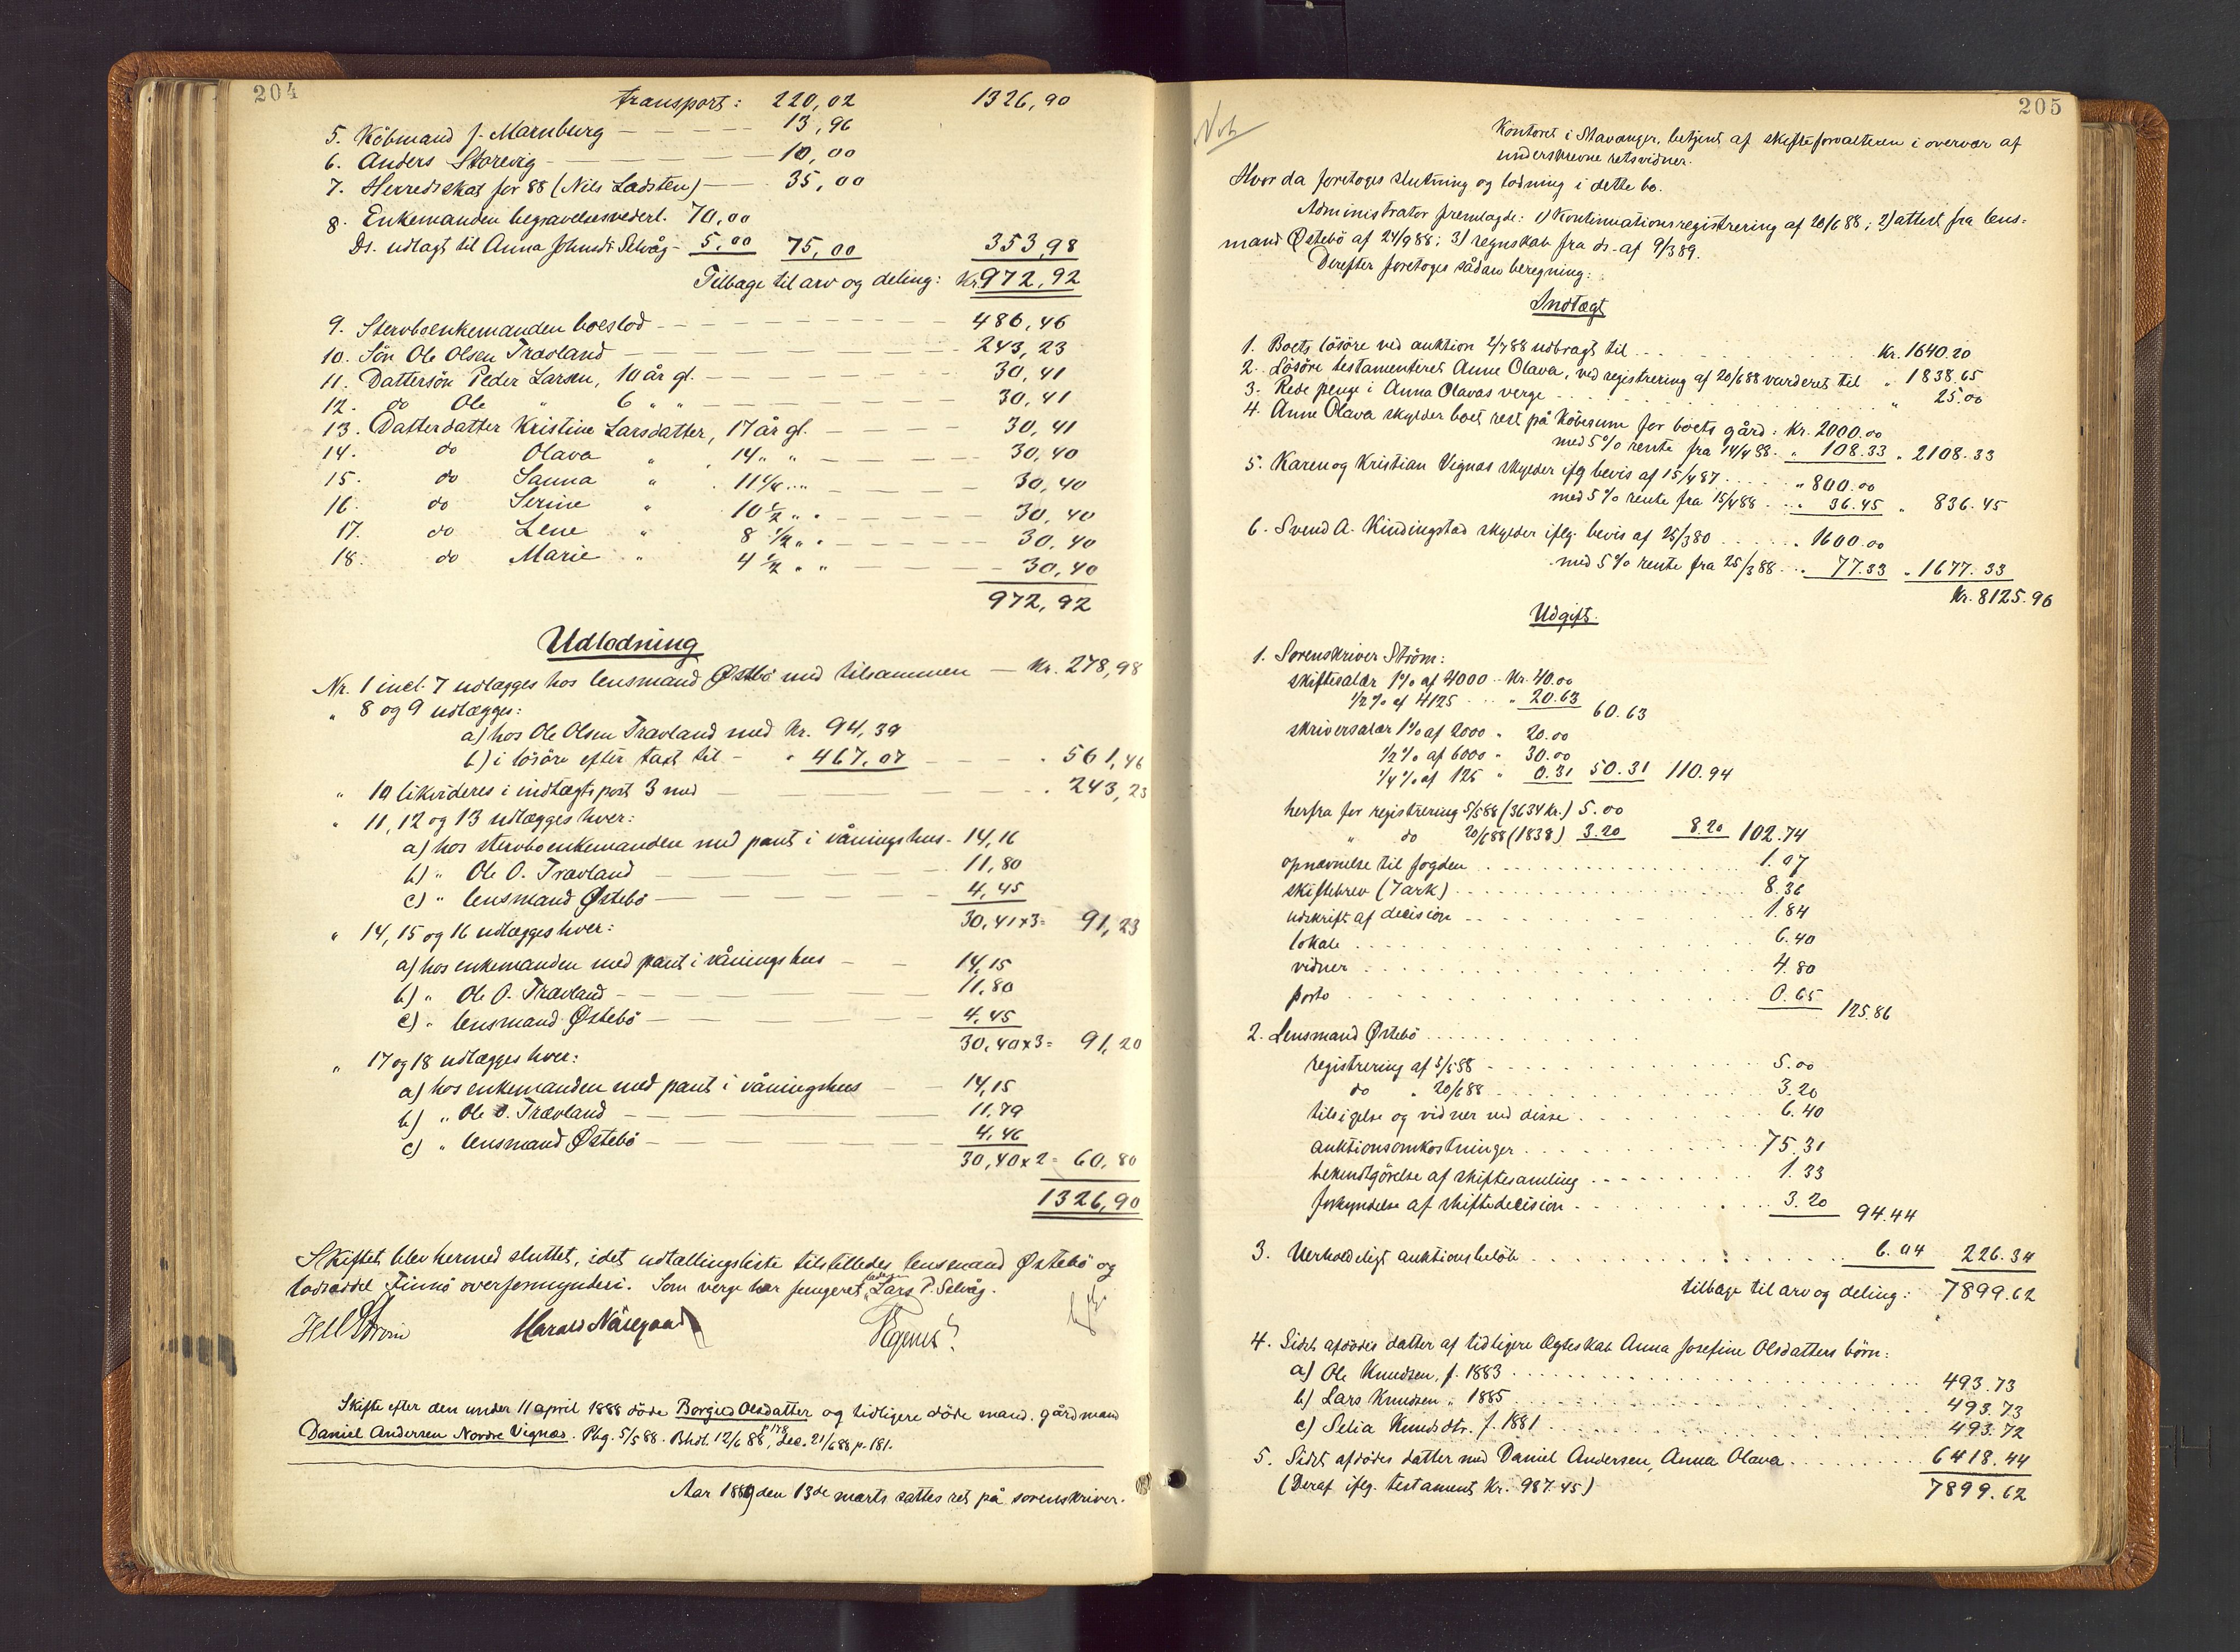 204
transport: 220,02 1326,90
5. Köbmand J. Marnburg — 13,96
6. Anders Storevig — 10,00
7. Herredsskat for 88 (Nils Ladsten) — 35,00
8. Enkemanden begravelsesvederl. 70,00
Ds. udlagt til Anna Johnsdr Selvåg - 5,00 75,00 353,98
Tilbage til arv og deling: Kr. 972,92
9. Stervboenkemanden boeslod — 486,46
10. Sön Ole Olsen Trævland — 243,23
11. Dattersön Peder Larsen, 10 år gl. — 30,41
12. do Ole " 6 " " — 30,41
13. Datterdatter Kristine Larsdatter, 17 år gl. — 30,41
14. do Olava " 14 " " — 30,40
15. do Sanna " 11 " " — 30,40
16. do Serine " 10 1/2 " " — 30,40
17. do Lene " 8 1/2 " " — 30,40
18. do Marie " 4 1/2 " " — 30,40
972,92
Udlodning
Nr. 1 incl. 7 udlægges hos lensmand Østebö med tilsammen — Kr. 278,98
" 8 og 9 udlægges:
a) hos Ole Olsen Trævland med Kr. 94,39
b) i lösöre efter taxt til - " 467,07 — " 561,46
" 10 likvideres i indtægtspost 3 med — " 243,23
" 11, 12 og 13 udlægges hver:
a) hos stervboenkemanden med pant i våningshus - 14,16
b) " Ole O. Trævland — 11,80
c) " lensmand Østebö — 4,45
30,41 x 3 = 91,23
" 14, 15 og 16 udlægges hver:
a) hos enkemanden med pant i våningshus — 14,15
b) " Ole O. Trævland — 11,80
c) " lensmand Østebö — 4,45
30,40 x 3 = 91,20
" 17 og 18 udlægges hver:
a) hos enkemanden med pant i våningshus — 14,15
b) " Ole O. Trævland — 11,79
c) " lensmand Østebö — 4,46
30,40 x 2 = 60,80
1326,90
Skiftet blev hermed sluttet, idet udtællingsliste tilstilledes lensmand Østebö og
lodseddel Finnö overformynderi. Som verge har fungeret faderen Lars P. Selvåg.
Harald Nåregaard
Skifte efter den under 11 april 1888 döde Borgild Olsdatter og tidligere döde mand, gårdmand
Daniel Andersen Nordre Vignæs. Rbg. 5/5 88. Bhdl. 12/6 88 p. 178, dec. 21/6 88 p. 181.
Aar 1889 den 13de marts sattes ret på sorenskriver-
205
Kontoret i Stavanger, betjent af skifteforvalteren i overvær af
underskrevne retsvidner.
Hvor da foretoges slutning og lodning i dette bo.
Administrator fremlagde: 1) Kontinuationsregistrering af 20/6 88; 2) attest fra lens-
mand Østebö af 24/9 88; 3) regnskab fra ds. af 9/3 89.
Derefter foretoges sådan beregning:
Indtægt
1. Boets lösöre ved auktion 2/7 88 udbragt til . . . Kr. 1640.20
2. Lösöre testamenteret Anne Olava, ved registrering af 20/6 88 vurderet til " 1838.65
3. Rede penge i Anna Olavas verge . . . " 25.00
4. Anne Olava skylder boet rest på Köbesum for boets gård: Kr. 2000.00
med 5% rente fra 14/4 88 . " 108.33 " 2108.33
5. Karen og Kristian Vignæs skylder iflg bevis af 15/4 87 . . . " 800.00
med 5% rente fra 15/4 88 . . . 36.45 " 836.45
6. Svend A. Kindingstad skylder iflg. bevis af 25/3 80 . . . " 1600.00
med 5% rente fra 25/3 88 . . . 77.33 " 1677.33
Kr. 8125.96
Udgift.
1. Sorenskriver Ström:
skiftesalær 1% af 4000 - Kr. 40.00
1/2% af 4125 . . . " 20.63 60.63
skriversalær 1% af 2000 " 20.00
1/2% af 6000 " 30.00
1/4% af 125 " 0.31 50.31 110.94
herfra for registrering 5/5 88 (3634 kr.) 5.00
" do 20/6 88 (1838) 3.20 8.20 102.74
opnævnelse til fogden . . . 1.07
skiftebrev (7 ark) . . . 8.36
udskrift af decision . . . 1.84
lokale . . . 6.40
vidner . . . 4.80
porto . . . 0.65 125.86
2. Lensmand Østebö . . .
registrering af 5/5 88 . . . 5.00
do " 20/6 88 . . . 3.20
tilsigelse og vidner ved disse . . . 6.40
auktionsomkostninger . . . 75.31
bekendtgörelse af skiftesamling . . . 1.33
forkyndelse af skiftedecision . . . 3.20 94.44
3. Uerholdeligt auktionsbelöb . . . 6.04 226.34
tilbage til arv og deling: 7899.62
4. Sidst afdödes datter af tidligere Ægteskab Anna Josefine Olsdatters börn:
a) Ole Knudsen, f. 1883 . . . 493.73
b) Lars Knudsen " 1885 . . . 493.73
c) Selia Knudsdtr. f. 1881 . . . 493.72
5. Sidst afdödes datter med Daniel Andersen, Anna Olava . . . 6418.44
(Deraf iflg. testament Kr. 987.45) 7899.62